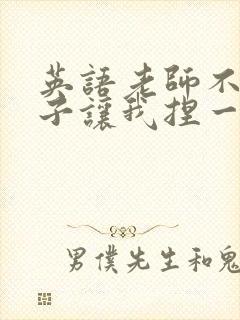 英語老師不
子讓我捏一
男僕先生和鬼